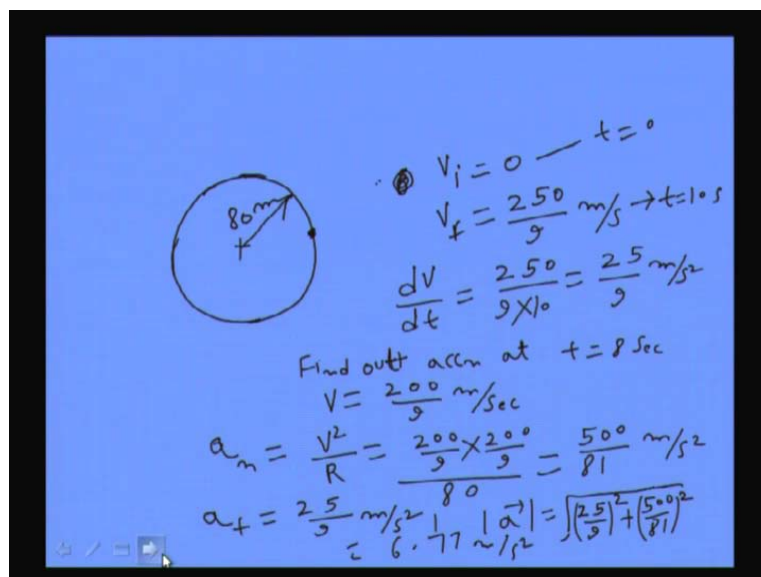 80m
Vi = 0 — t = 0
Vf = 250/9 m/s → t=10 s
dV/dt = 250/9×10 = 25/9 m/s²
Find outt accn at t = 8 Sec
V = 200/9 m/sec
an = V²/R = 200/9 × 200/9 / 80 = 500/81 m/s²
at = 25/9 m/s² |a⃗| = √(25/9)² + (500/81)²
= 6.77 m/s²